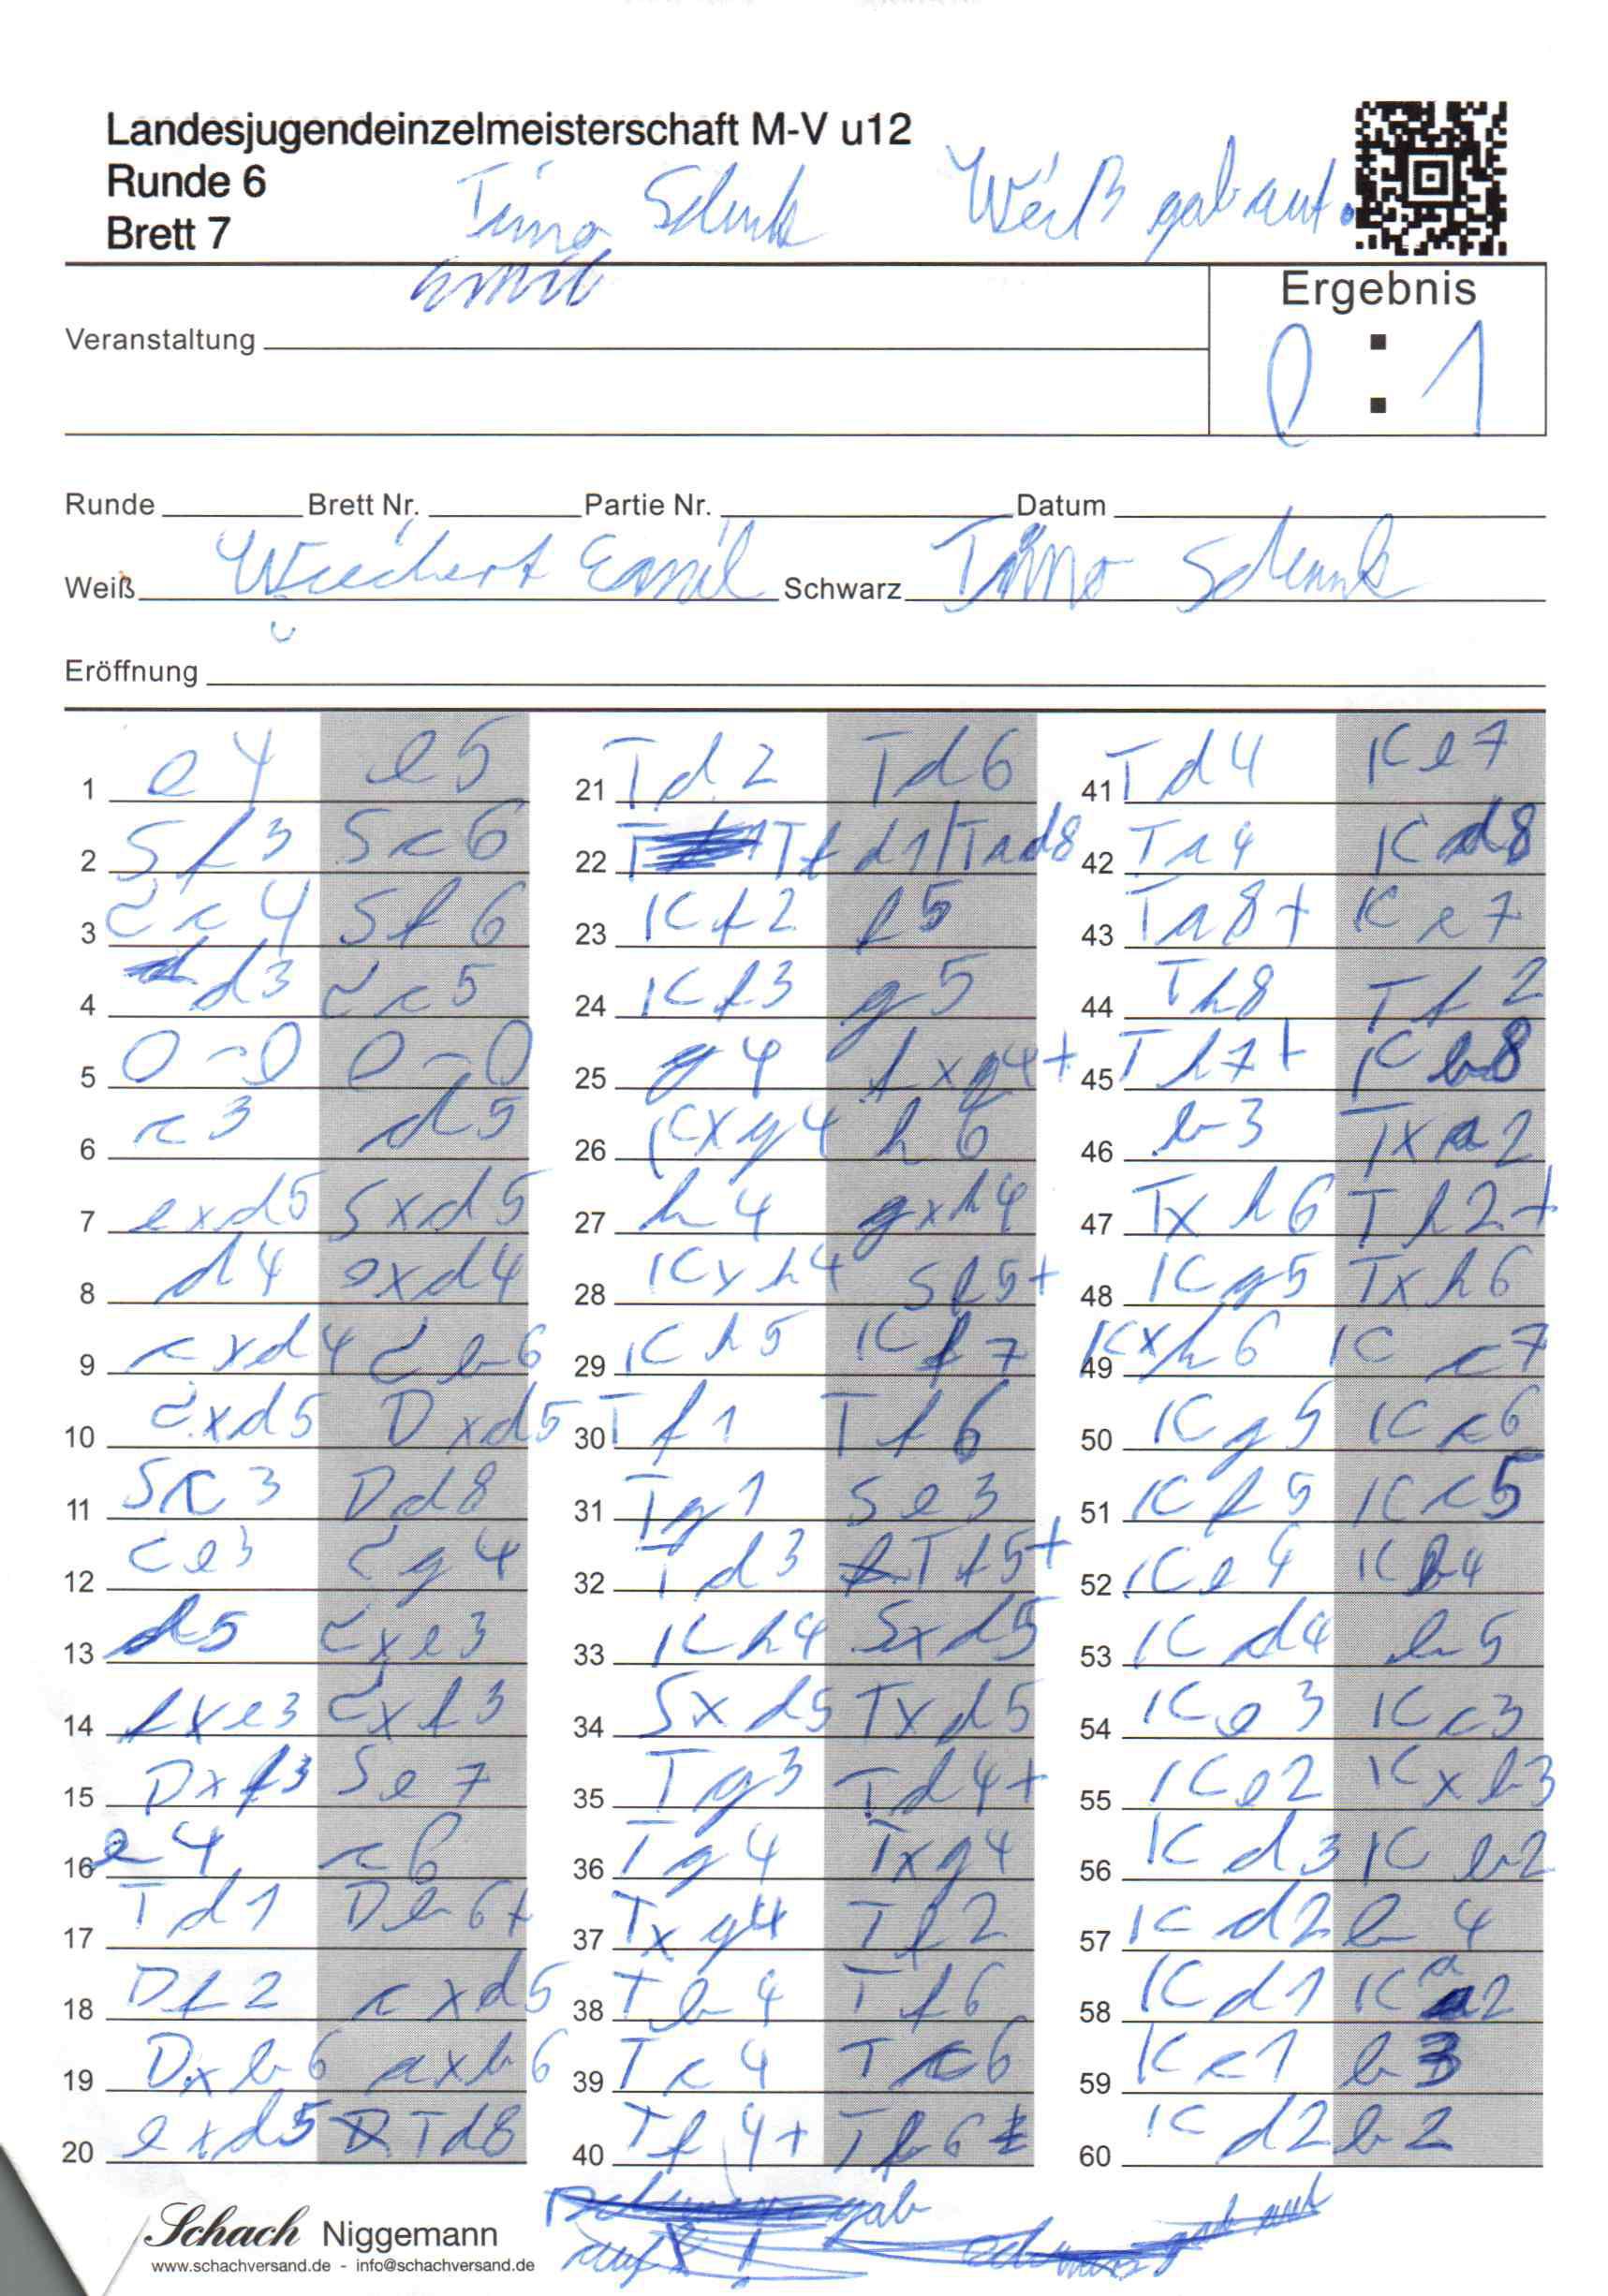 Landesjugendeinzelmeisterschaft M-V u12
Runde 6
Brett 7
Timo Schenk Weiß gab auf.
Emil
Ergebnis
Veranstaltung
0 : 1
Runde Brett Nr. Partie Nr. Datum
Weiß Wiechert Emil Schwarz Timo Schenk
Eröffnung
1 e4 e5
2 Sf3 Sc6
3 Lc4 Sf6
4 d3 Lc5
5 0-0 0-0
6 c3 d5
7 exd5 Sxd5
8 d4 exd4
9 cxd4 Lb6
10 Lxd5 Dxd5
11 Sc3 Dd8
12 Le3 Lg4
13 d5 Lxe3
14 fxe3 Lxf3
15 Dxf3 Se7
16 e4 c6
17 Td1 Db6+
18 Df2 cxd5
19 Dxb6 axb6
20 exd5 Td8
21 Td2 Td6
22 Tfd1 Tad8
23 Kf2 f5
24 Kf3 g5
25 g4 fxg4+
26 Kxg4 h6
27 h4 gxh4
28 Kxh4 Sf5+
29 Kh5 Kf7
30 Tf1 Tf6
31 Tg1 Se3
32 Td3 Tf5+
33 Kh4 Sxd5
34 Sxd5 Txd5
35 Tg3 Td4+
36 Tg4 Txg4
37 Txg4 Tf2
38 Tb4 Tf6
39 Tc4 Tc6
40 Tf4+ Tf6
41 Td4 Ke7
42 Ta4 Kd8
43 Ta8+ Ke7
44 Th8 Tf2
45 Th7+ Kb8
46 b3 Txa2
47 Txh6 Th2+
48 Kg5 Txh6
49 Kxh6 Kc7
50 Kg5 Kc6
51 Kf5 Kc5
52 Ke4 Kb4
53 Kd4 b5
54 Ke3 Kc3
55 Ke2 Kxb3
56 Kd3 Kb2
57 Kd2 b4
58 Kd1 Ka2
59 Kc1 b3
60 Kd2 b2
gab
Schach Niggemann gab auf
www.schachversand.de - info@schachversand.de auf!